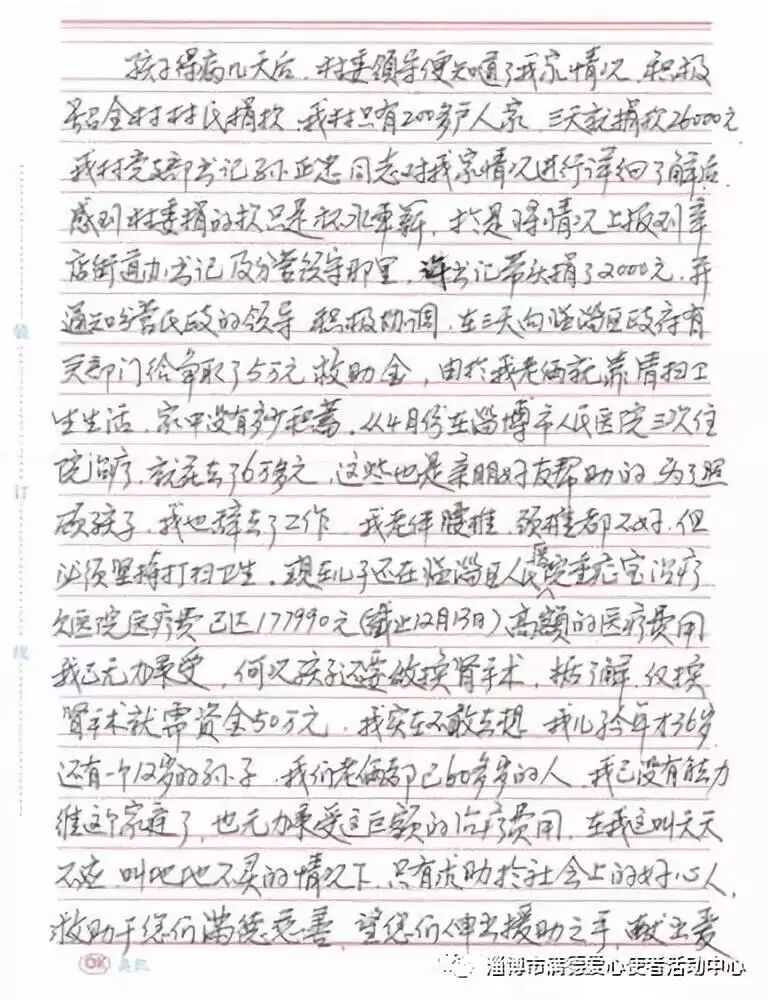 孩子得病几天后,村委领导便知道了我家情况,积极
号召全村村民捐款,我村只有200多户人家,三天就捐款26000元
我村党支部书记孙正忠同志对我家情况进行详细了解后
感到村委捐的款只是杯水车薪,于是将情况上报到辛
店街道办书记及分管领导那里,许书记带头捐了2000元,并
通知分管民政的领导 积极协调,在三天向临淄区政府有
关部门给争取了5万元救助金,由于我老俩就靠清扫卫
生生活,家中没有多少积蓄,从4月份在淄博市人民医院三次住
院治疗,就花去了6万多元,这些也是亲朋好友帮助的,为了照
顾孩子,我也辞去了工作 我老伴腰椎,颈椎都不好,但
必须坚持打扫卫生,现在儿子还在临淄区人民医院重症室治疗
欠医院医疗费已达177990元(截止12月13日)高额的医疗费用
我已无力承受,何况孩子还要做换肾手术,据了解,仅换
肾手术就需资金50万元,我实在不敢去想 我儿今年才36岁
还有一个12岁的孙子,我们老俩都已60多岁的人,我已没有能力
维这个家庭了,也无力承受这巨额的治疗费用,在我这叫天天
不应,叫地地不灵的情况下,只有求助于社会上的好心人,
救助于您们满德慈善,望您们伸出援助之手,献出爱
装
订
线
OK
淄博市满德爱心使者活动中心